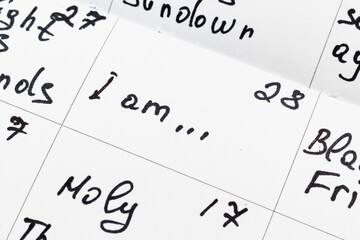 ght 27
sundown
28
I am...
nds
7
Moly 17
Bla
Fri
Th
s
ag